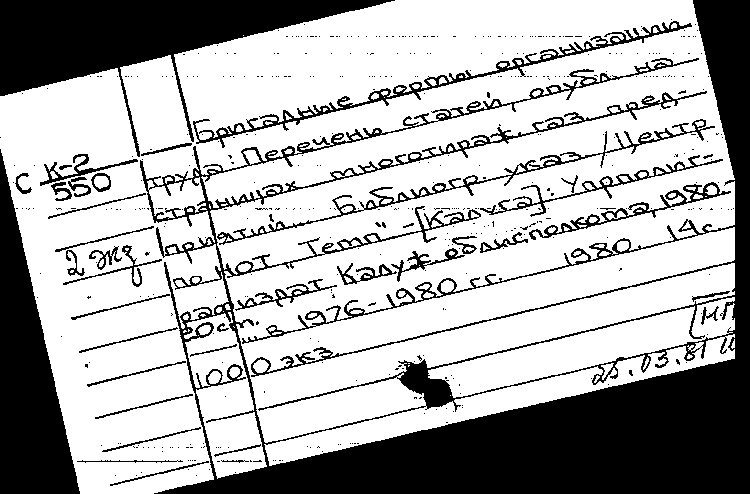 Бригадные формы организации
С К-2/550
труда: Перечень статей, опубл. на
страницах многотираж. газ. пред-
2 экз.
приятий... Библиогр. указ. / Центр
по НОТ „Темп" - [Калуга]: Упрполиг-
рафиздат Калуж облисполкома, 1980.-
20 ст. ... в 1976-1980 гг. 1980. 14с.
1000 экз.
[НП
25.03.81